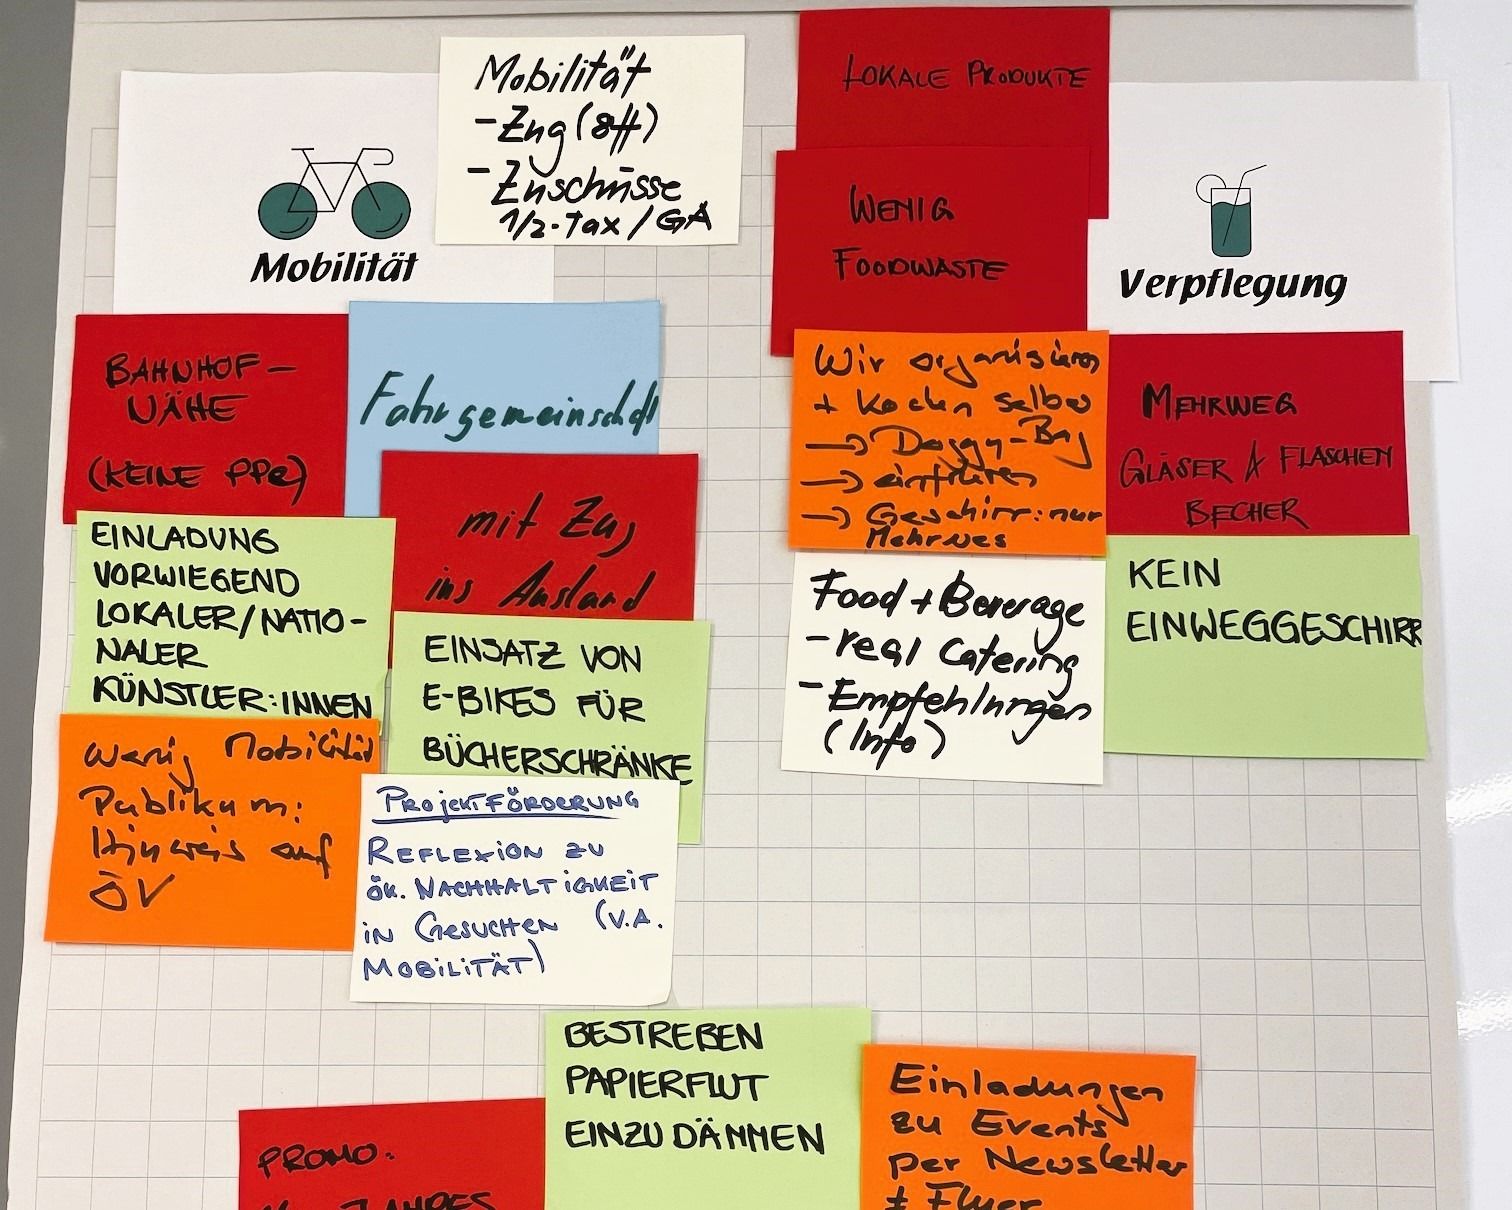 Mobilität
- Zug (8tt)
- Zuschüsse
1/2-Tax / GA
Mobilität
BAHNHOF-
NÄHE
(KEINE PPe)
Fahrgemeinschaft
mit Zug
ins Ausland
EINLADUNG
VORWIEGEND
LOKALER/NATIO-
NALER
KÜNSTLER:INNEN
EINSATZ VON
E-BIKES FÜR
BÜCHERSCHRÄNKE
Wenig Mobilität
Publikum:
Hinweis auf
ÖV
PROJEKTFÖRDERUNG
REFLEXION ZU
ÖK. NACHHALTIGKEIT
IN GESUCHEN (V.A.
MOBILITÄT)
LOKALE PRODUKTE
WENIG
FOODWASTE
Verpflegung
Wir organisieren
+ kochen selber
→ Doggy-Bag
→ einfrieren
→ Geschirr: nur
Mehrweg
MEHRWEG
GLÄSER & FLASCHEN
BECHER
Food + Beverage
- real Catering
- Empfehlungen
(Info)
KEIN
EINWEGGESCHIRR
BESTREBEN
PAPIERFLUT
EINZUDÄMMEN
PROMO:
Einladungen
zu Events
per Newsletter
≠ Flyer